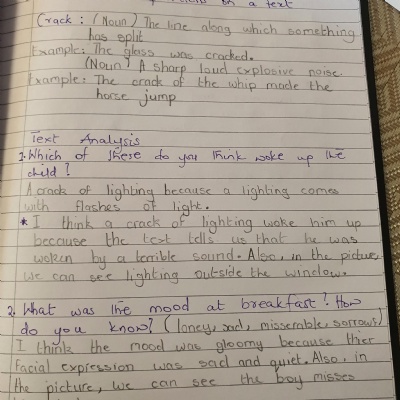 on a text
Crack : (Noun) The line along which something
has split
Example: The glass was cracked.
(Noun) A sharp loud explosive noise.
Example: The crack of the whip made the
horse jump
Text Analysis
1. Which of these do you think woke up the
child?
A crack of lighting because a lighting comes
with flashes of light.
* I think a crack of lighting woke him up
because the text tells us that he was
woken by a terrible sound. Also, in the picture,
we can see lighting outside the window.
2. What was the mood at breakfast? How
do you know? (loney, sad, misserable, sorrows)
I think the mood was gloomy because thier
facial expression was sad and quiet. Also, in
the picture, we can see the boy misses